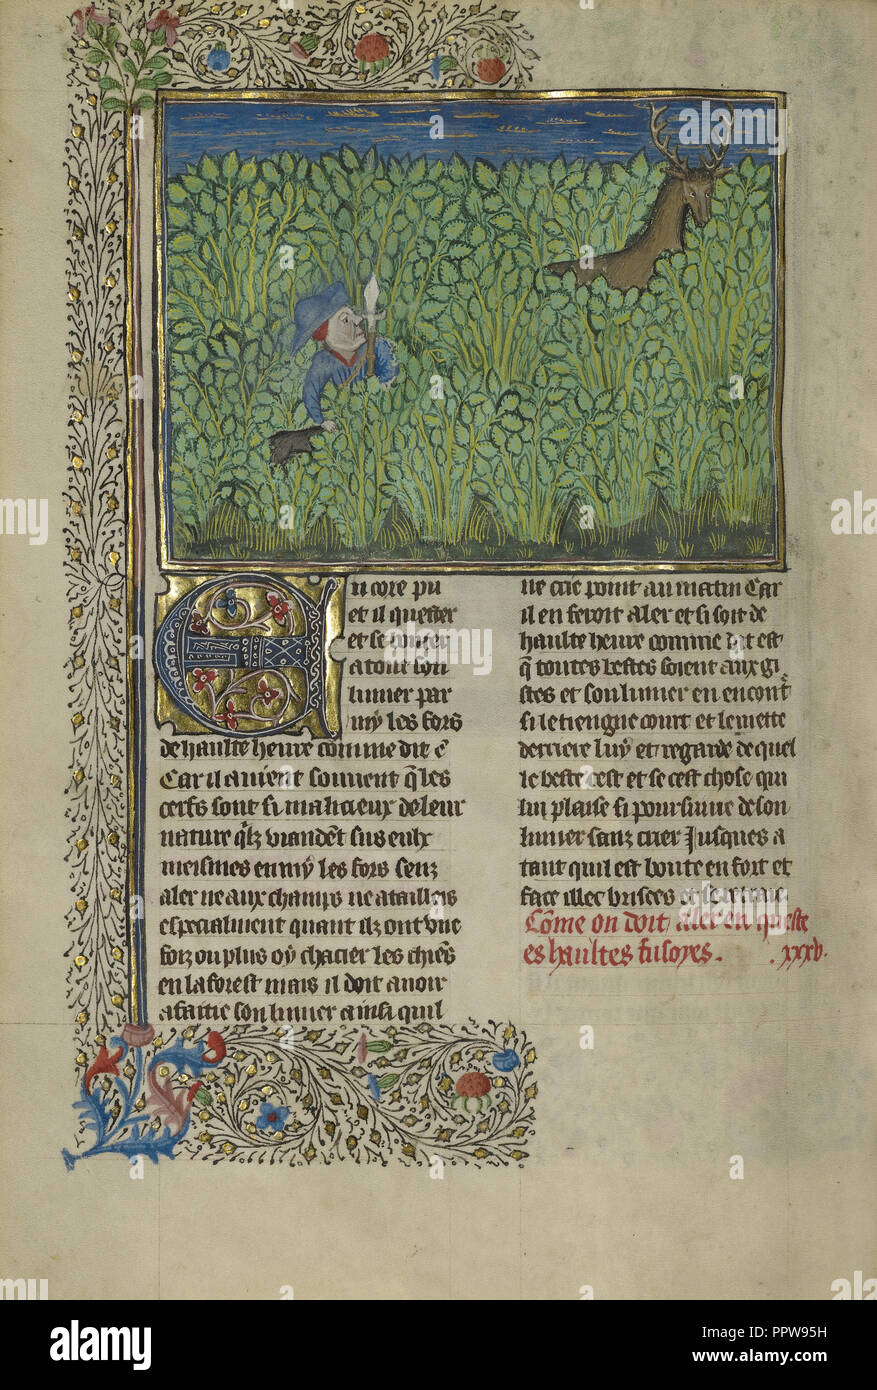 Encore pu
et il quester
et se bouter
a tout son
limier par
my les fors
de haulte heure comme dit e
Car il avient souvent q̄ les
cerfs sont si malicieux de leur
nature q̄lz viandēt sus eulx
meismes enmy les fors senz
aler ne aux champs ne a tailleis
especialment quant ilz ont une
foiz ou plus oy chacier les chiēs
en la forest mais il doit avoir
afaitie son limier ainsi quil
ne crie point au matin Car
il en feroit aler et si soit de
haulte heure comme dit est
q̄ toutes bestes soient aux gi
stes et son limier en encont
si le tiengne court et le mette
derriere luy et regarde de quel
le beste cest et se cest chose qui
lui plaise si poursuive de son
limier sanz crier Jusques a
tant quil est boute en fort et
face illec brisees et se retraie
Cōme on doit aler en queste
es haultes futoyes. .xxxv.
alamy
Image ID: PPW95H
www.alamy.com